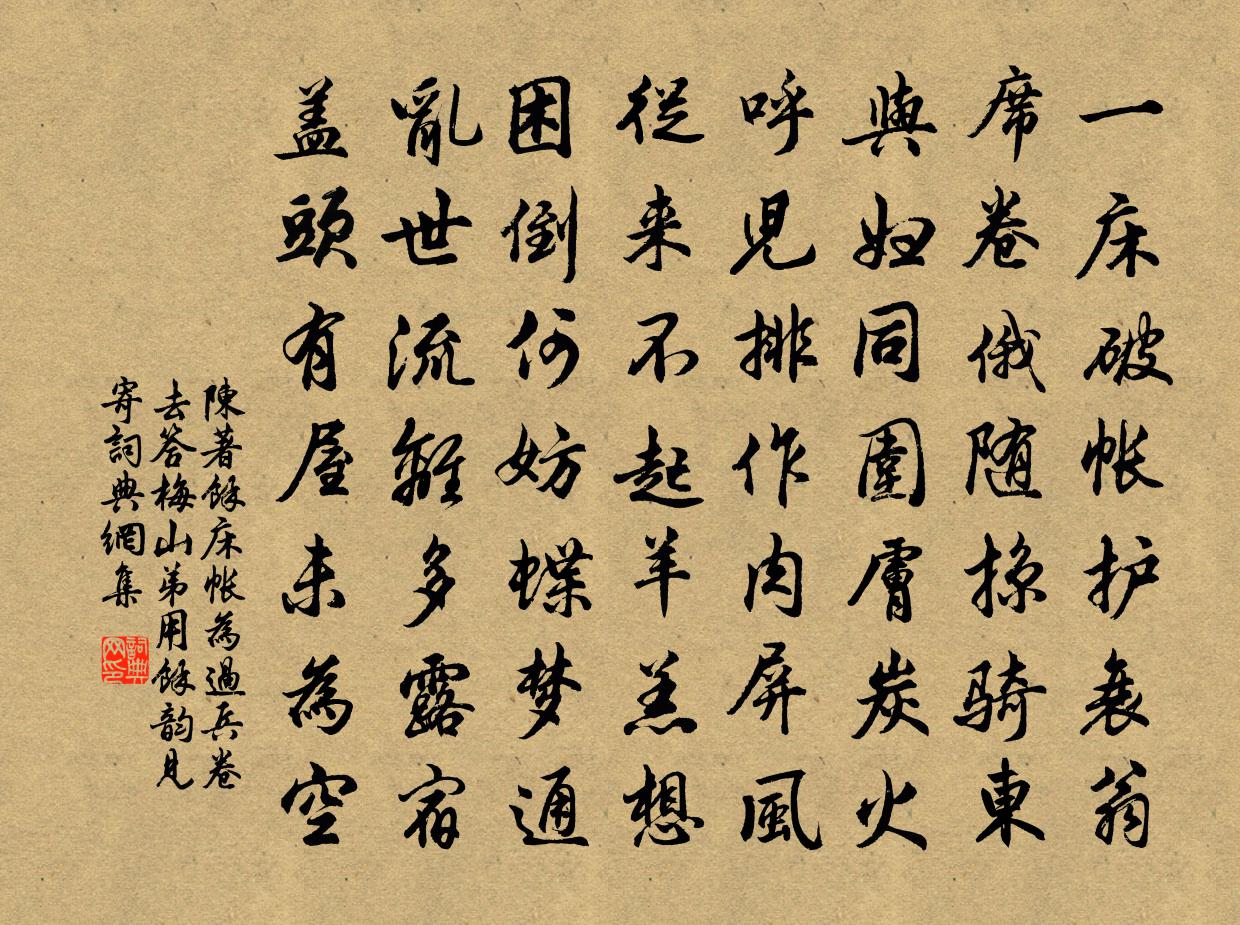 一床破帐护衰翁
席卷俄随掠骑東
與妇同圍膚炭火
呼児排作肉屏風
從来不起羊羔想
困倒何妨蝶梦通
亂世流離多露宿
盖頭有屋未為空
陳著餘床帐為過兵卷
去答梅山弟用餘韵見
寄詞典網集
詞典网印